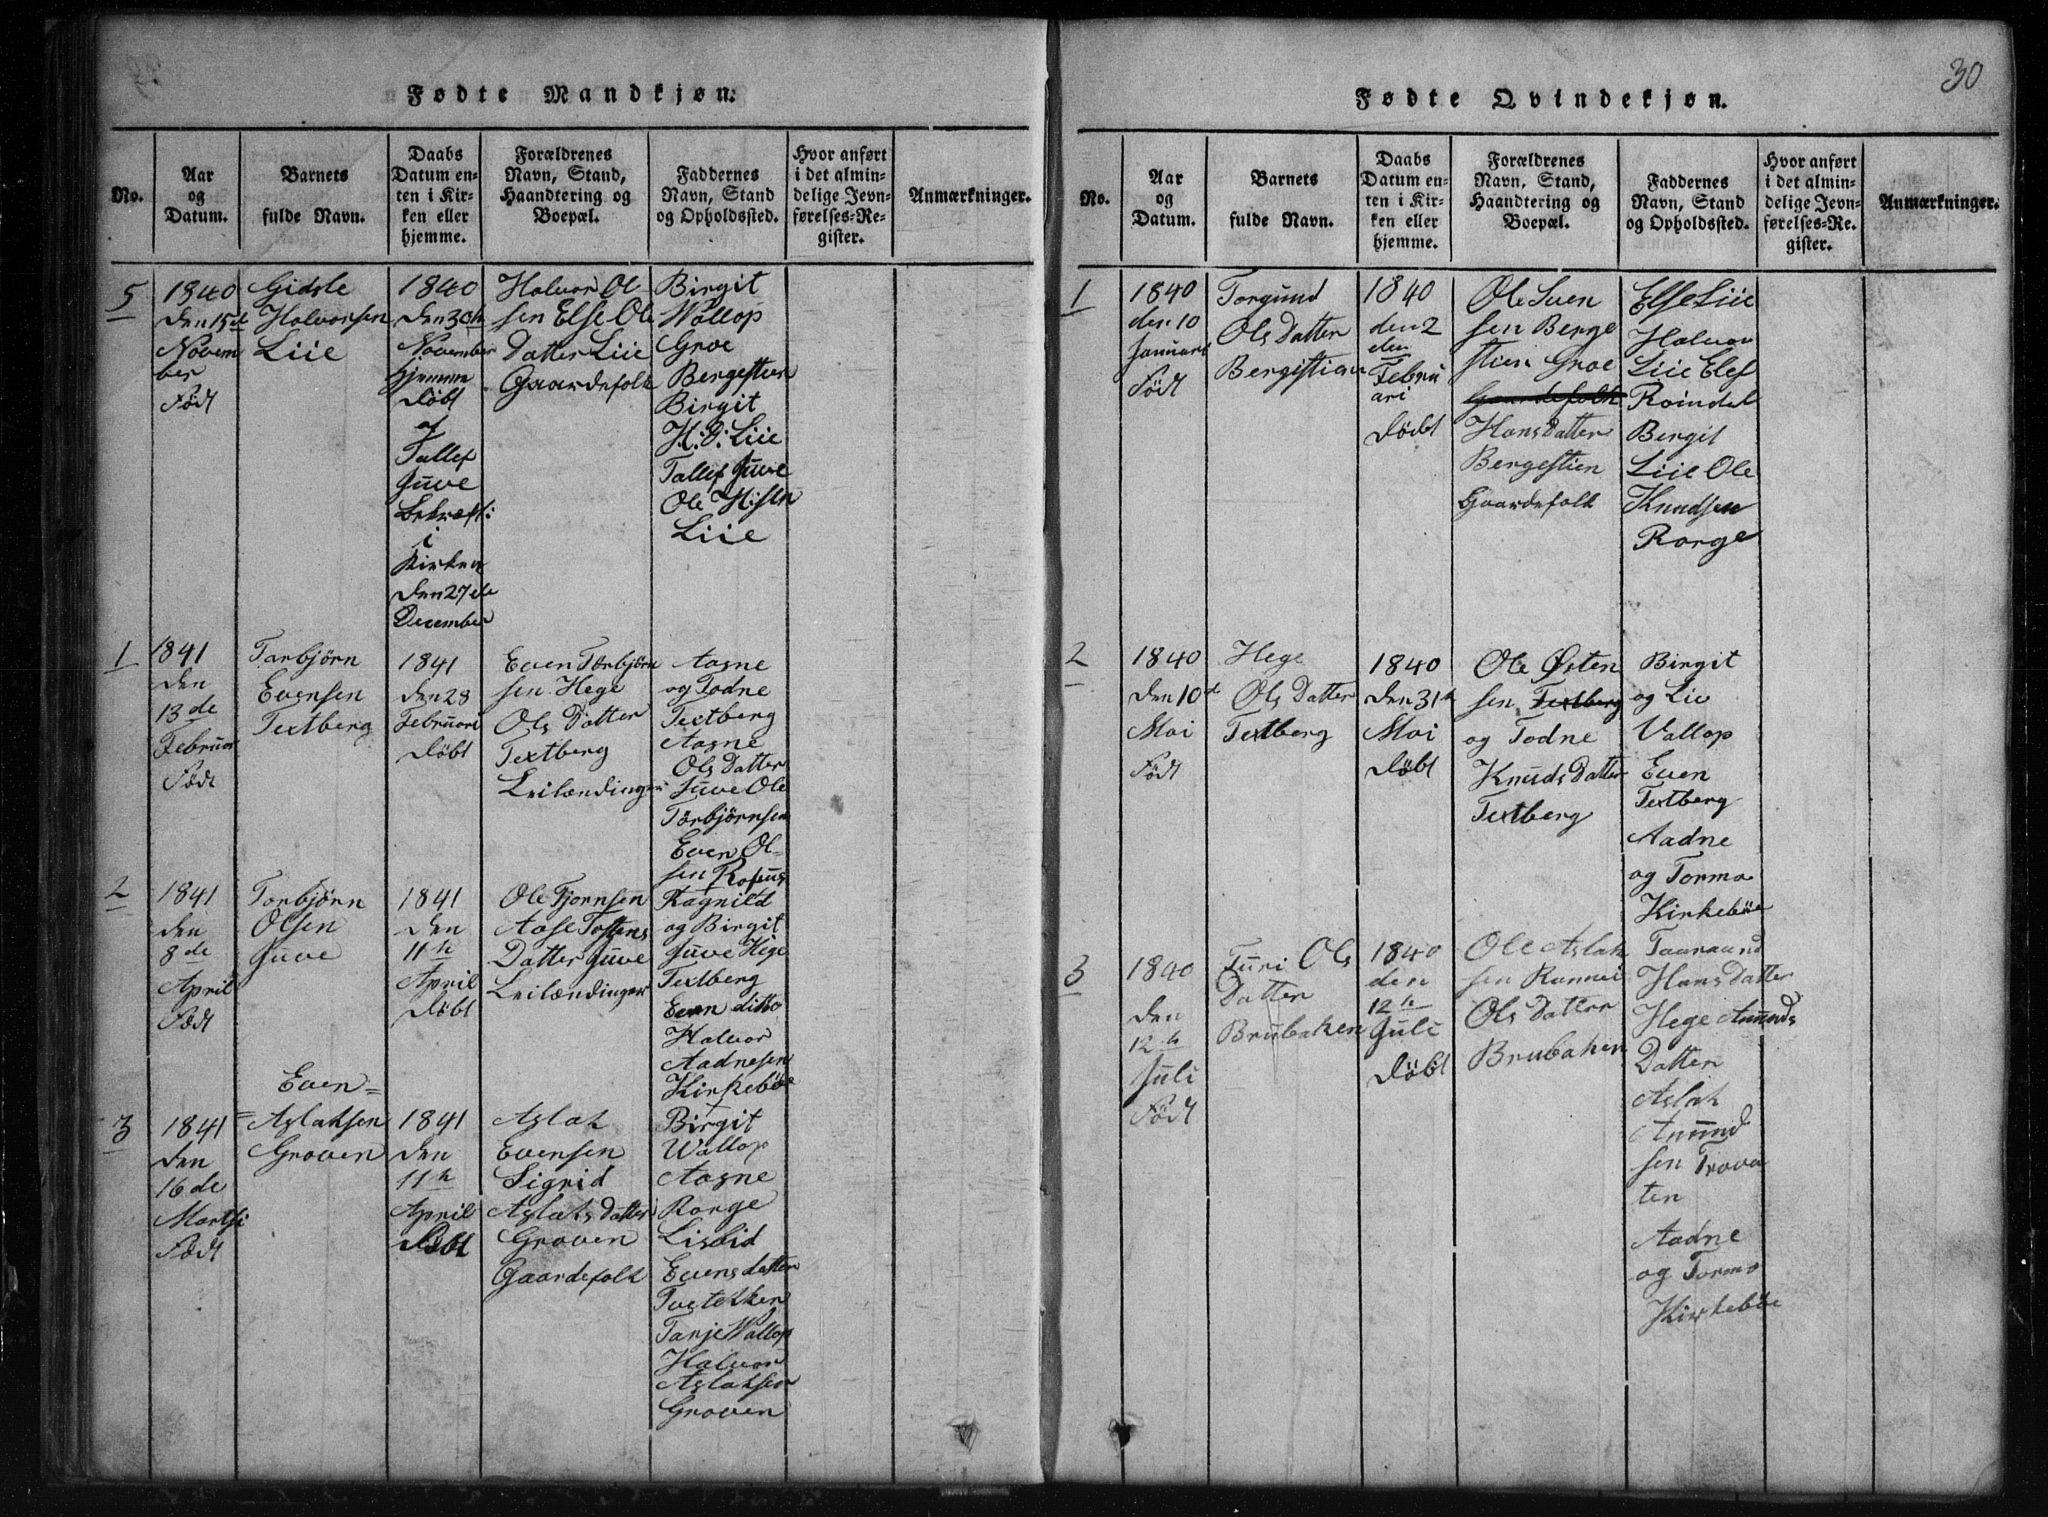 Fødte Mandkjøn.
No.
Aar
og
Datum.
Barnets
fulde Navn.
Daabs
Datum en-
ten i Kir-
ken eller
hjemme.
Forældrenes
Navn, Stand,
Haandtering og
Boepæl.
Faddernes
Navn, Stand
og Opholdssted.
Hvor anført
i det almin-
delige Jevn-
førelses-Re-
gister.
Anmærkninger.
5
1840
den 15d
Novem
ber
Födt
Gidsle
Halvorsen
Liie
1840
den 30th
November
hjemme
döbt
af
Tallef
Juve
bekræft:
i
Kirken
den 27de
December
Halvor Ol
sen Else Ols
Datter Liie
Gaardefolk
Birgit
Wallop
Groe
Bergestien
Birgit
H. O. Liie
Tallef Juve
Ole H:sen
Liie
1
1841
den
13de
Februar
Födt
Tarbjörn
Evensen
Textberg
1841
den 28
Februari
döbt
Even Torbjörn
sen Hege
Ols Datter
Textberg
Leilændinger
Aasne
og Todne
Textberg
Aasne
Ols Datter
Juve Ole
Torbjörnsen
Even Ol-
sen Rofsus
2
1841
den
8de
April
Fædt
Torbjörn
Olsen
Juve
1841
den
11th
April
döbt
Ole Tjornsen
Aase Tostens
Datter Juve
Leilændinger
Ragnild
og Birgit
Juve Hege
Textberg
Even ditto
Halvor
Aadnesen
Kirkeböe
3
1841
den
16de
Martsi
Fædt
Even=
=Aslaksen
Groven
1841
den
11th
April
döbt
Aslak
Evensen
Sigrid
Aslaks Datter
Groven
Gaardefolk
Birgit
Wallop
Aasne
Rorge
Lisbid
Evensdatter
Tvetekken
Tanje Wallop
Halvor
Aslaksen
Groven
30
Fødte Qvindekjøn.
No.
Aar
og
Datum.
Barnets
fulde Navn.
Daabs
Datum en-
ten i Kir-
ken eller
hjemme.
Forældrenes
Navn, Stand,
Haandtering og
Boepæl.
Faddernes
Navn, Stand
og Opholdssted.
Hvor anført
i det almin-
delige Jevn-
førelses-Re-
gister.
Anmærkninger.
1
1840
den 10
Januari
Födt
Torgund
Ols Datter
Bergestien
1840
den 2
den
Febru
ari
döbt
Ole Sven
sen Berge
stien Groe
Gaardefolk
Hans Datter
Bergestien
Gaardefolk
Else Liie
Halvor
Liie Elef
Roindal
Bergit
Liie Ole
Knudsen
Rorge
2
1840
den 10d
Mai
Födt
Hege
Ols Datter
Textberg
1840
den 31th
Mai
döbt
Ole Østen
sen Textberg
og Todne
Knuds Datter
Textberg
Birgit
og Liv
Vallop
Even
Textberg
Aadne
og Tormo
Kirkeböe
3
1840
den
12th
Juli
Födt
Turi Ols
Datter
Brubaken
1840
den
12th
Juli
döbt
Ole Aslak
sen Rannei
Ols Datter
Brubaken
Taaraand
Hans Datter
Hege Amunds
Datter
Aslak
Amund
sen Trova
ten
Aadne
og Tormo
Kirkeböe